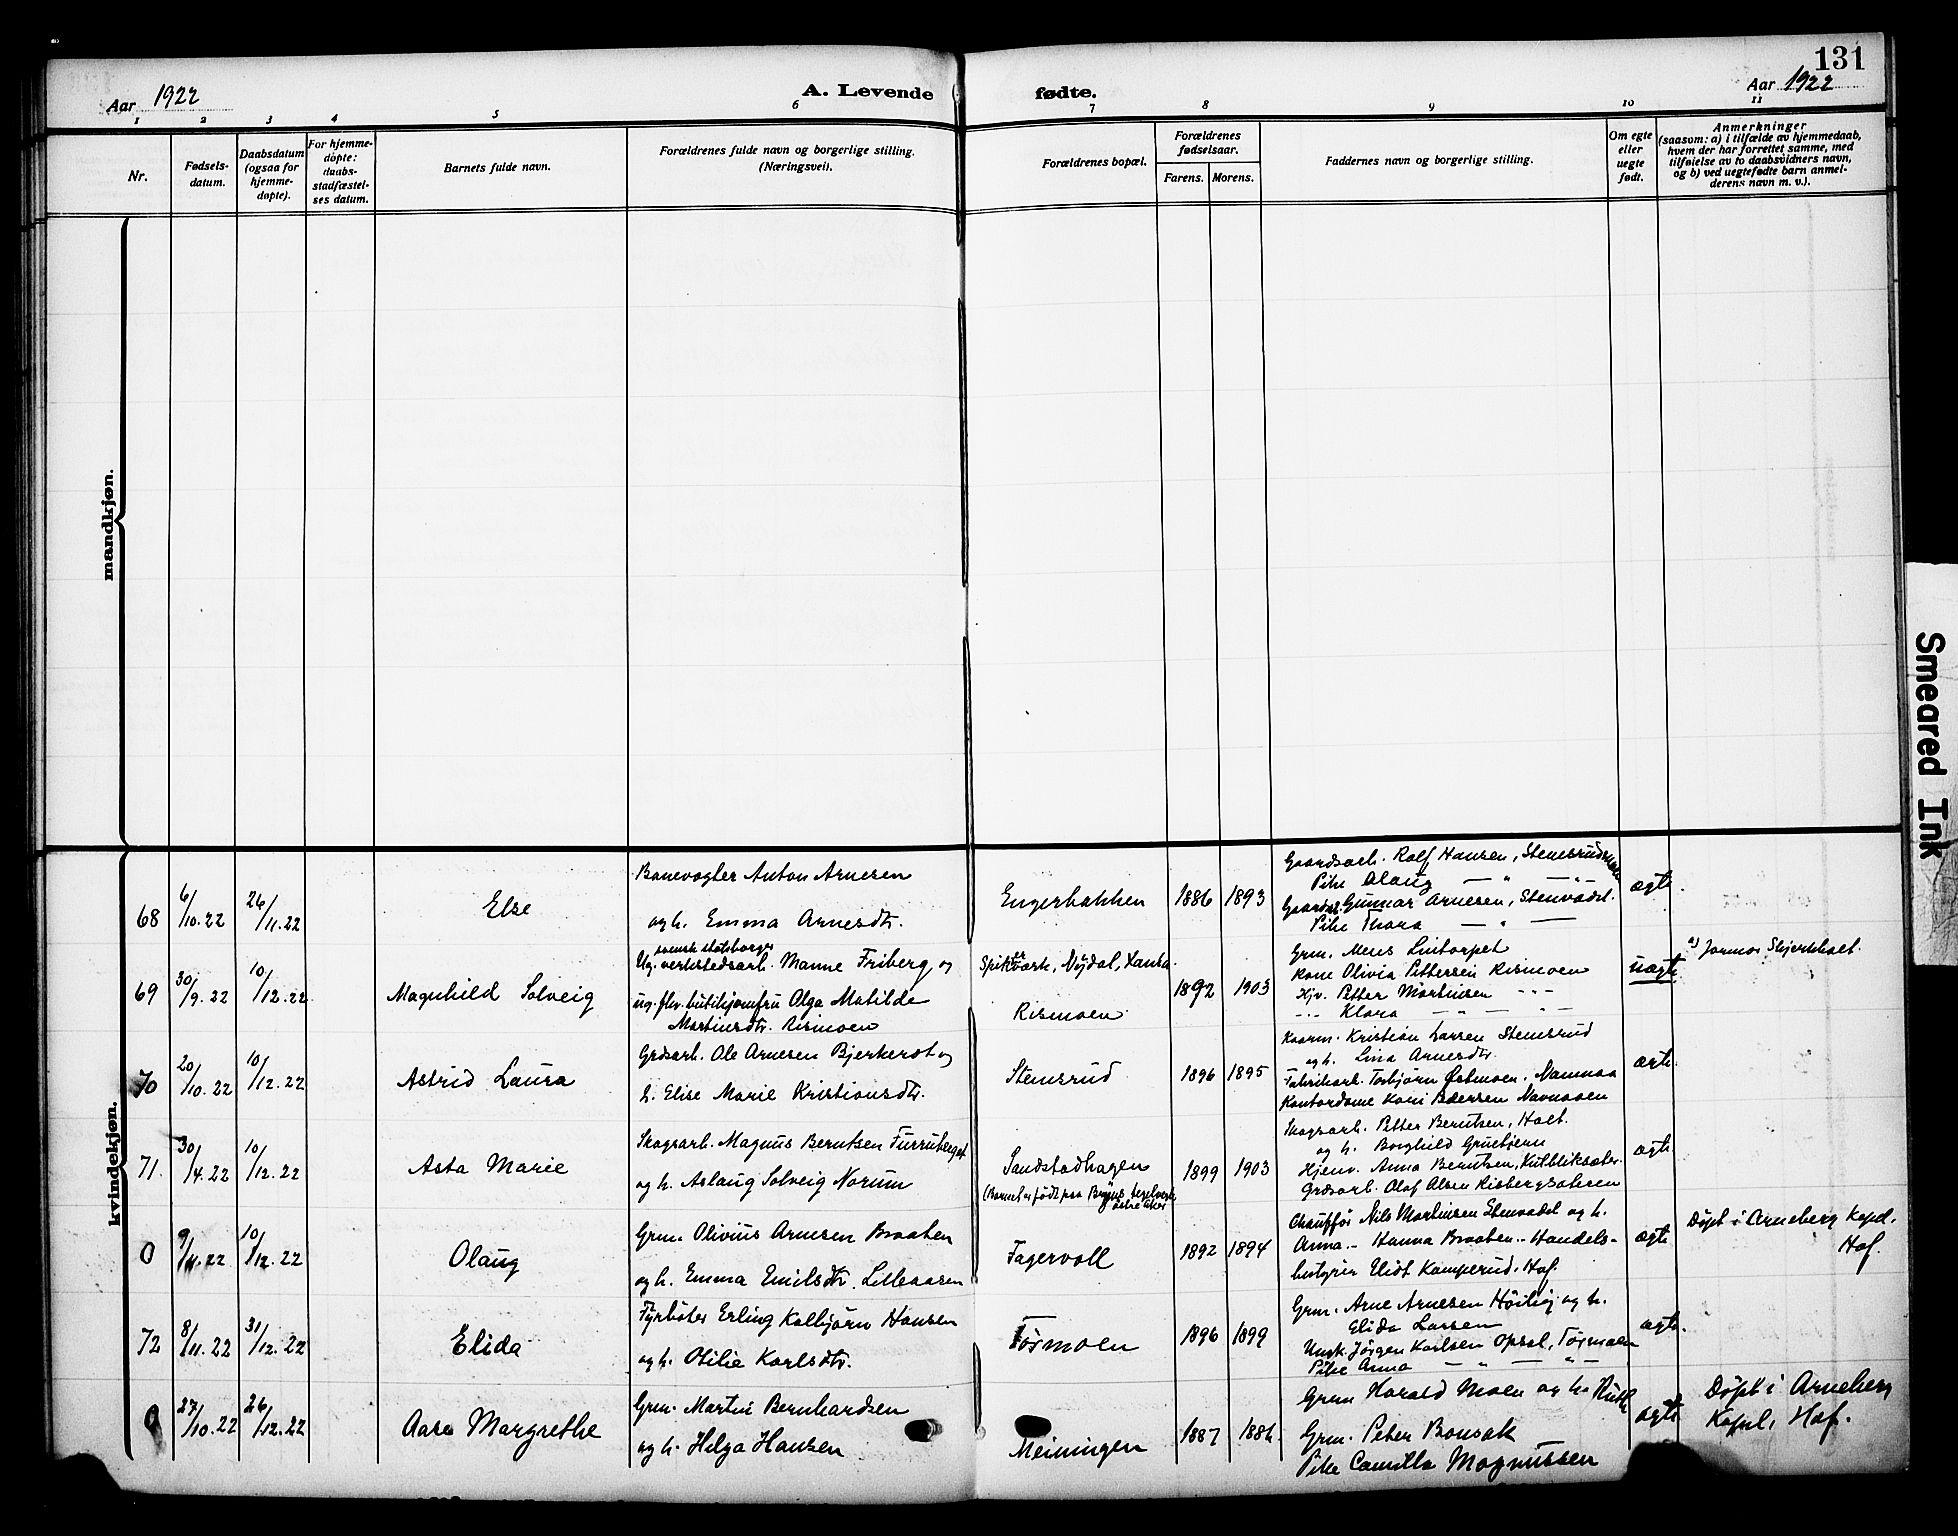 131
Aar 1922
A. Levende
fødte.
Aar 1922
1 2 3 4 5 6 7 8 9 10 11
Nr.
Fødsels-
datum.
Daabsdatum
(ogsaa for
hjemme-
døpte).
For hjemme-
døpte:
daabs-
stadfæstel-
ses datum.
Barnets fulde navn.
Forældrenes fulde navn og borgerlige stilling.
(Næringsvei).
Forældrenes bopæl.
Forældrenes
fødselsaar.
Farens. Morens.
Faddernes navn og borgerlige stilling.
Om egte
eller
uegte
født.
Anmerkninger
(saasom: a) i tilfælde av hjemmedaab,
hvem der har forrettet samme, med
tilføielse av to daabsvidners navn,
og b) ved uegtefødte barn anmel-
derens navn m. v.).
mandkjøn.
kvindekjøn.
68
6/10.22
26/11.22
Else
Banevogter Anton Arnesen
og h. Emma Arnesdtr.
Engerbakken
1886 1893
Gaardsarb. Rolf Hansen,
Pike Olaug — " — " —
Gaardsb. Gunnar Arnesen, Stenvadet.
Pike Thora — " —
ægte.
69
30/9.22
10/12.22
Magnhild Solveig
svensk statsborger
Ug. verkstedsarb. Manne Friberg og
ug. butikjomfru Olga Matilde
Martinsdtr. Rismoen
Nydal,
Rismoen
1892 1903
Grm. Mens Lintorpet
Kone Olivia Pettersen Rismoen
Hjv. Petter Martinsen " - "
- " - Klara — " — " —
uægte
a) Jormor Skjerholt.
70
20/10.22
10/12.22
Astrid Laura
Grdsarb. Ole Arnesen Bjerkerot og
h. Elise Marie Kristiansdtr.
Stemsrud
1896 1895
Kaarm. Kristian Larsen Stemsrud
og h. Lina Arnesdtr.
Fabrikarb. Torbjørn Østmoen, Namnaa
Kontordame
ægte.
71.
30/4.22
10/12.22
Asta Marie
Skogsarb. Magnus Berntsen Furruberget
og h. Aslaug Solveig Norum
Sandstadhagen
(Barnet er født paa
1899 1903
Skogsarb. Petter Berntsen, Holt.
og h. Borghild Gruebjern
Hjenv. Anna Berntsen,
Grdsarb. Olaf Olsen Risbergsæteren
ægte
0
9/11.22
10/12.22
Olaug
Grm. Olivius Arnesen Braaten
og h. Emma Emilsdtr. Lilleaasen
Fagervoll
1892 1894
Chauffør Nils Martinsen Stenvadet og h.
Anna - Hanna Braaten - Handels-
bestyrer Eliot Kamperud, Hof.
ægte
Døpt i Arneberg Kapel,
Hof.
72
8/11.22
31/12.22
Elida
Fyrbøter Erling Kolbjørn Hansen
og h. Otilie Karlsdtr.
Tørmoen
1896 1899
Grm. Arne Arnesen og h.
Elida Larsen
Ungk. Jørgen Karlsen Opsal, Tørmoen
Pike Anna — " — " —
ægte.
0
27/10.22
26/12.22
Aase Margrethe
Grm. Martin Bernhardsen
og h. Helga Hansen
Meiningen
1887 1886
Grm Harald Moen og h. Ruth
Grm. Peter Bonsak
Pike Camilla Magnussen
ægte
Døpt i Arneberg
Kapel, Hof.
Smeared Ink